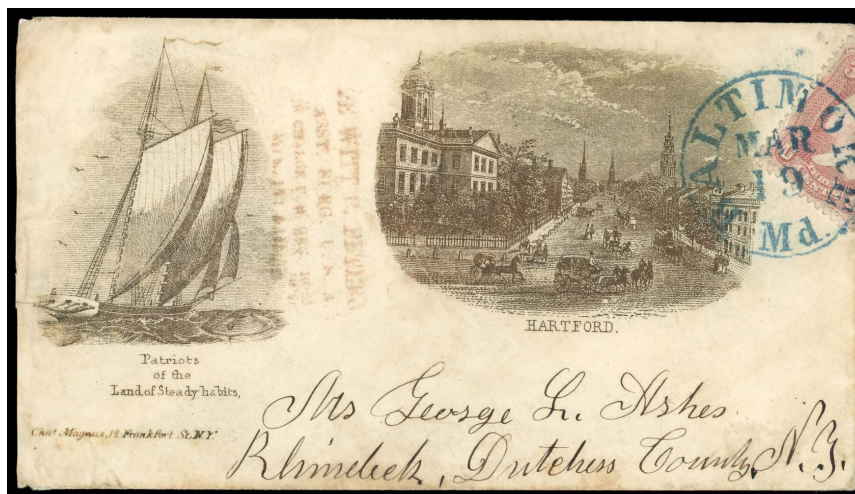 BALTIMORE
MAR
19
Md.
HARTFORD.
Patriots
of the
Land of Steady habits,
Chas Magnus, 12 Frankfort St. N.Y.
Mrs George L. Ashes
Rhinebeck, Dutchess County, N.Y.